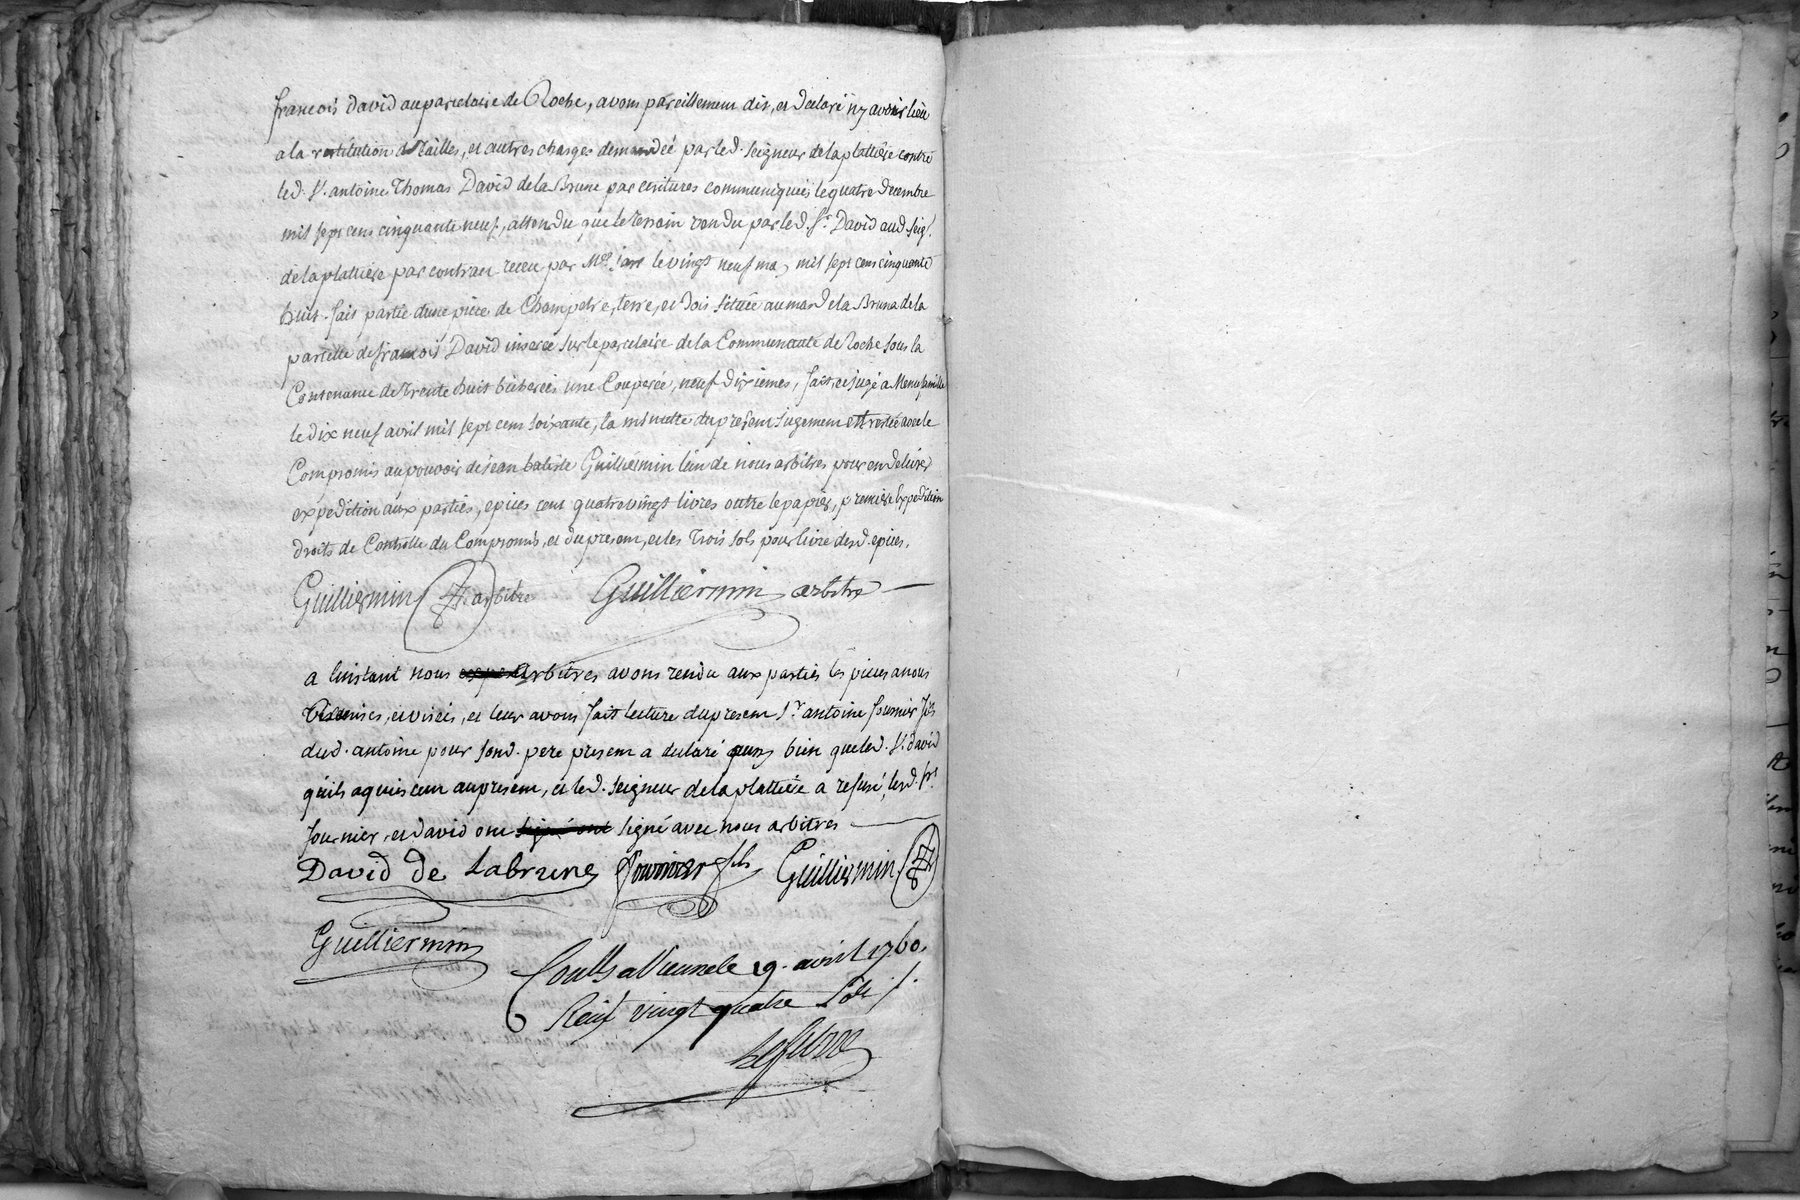 francois david au parcelaire de Roche, avons pareillement dit, et declaré n'y avoir lieu
a la restitution de Tailles, et autres charges demandée par led. seigneur de la plattiere contre
led. Sr. antoine Thomas David de la Brune par ecritures communiquées le quatre decembre
mil sept cens cinquante neuf, attendu que le terrain vendu par led. Sr. David aud. seigr.
de la platiere par contract receu par Me le vingt neuf may mil sept cens cinquante
huit fait partie d'une piece de Champetre, terre, et bois située au mas de la Bruna de la
parcelle de francois David inserée sur le parcelaire de la Communauté de Roche sous la
Contenance de Trente huit bicherées une Couperée, neuf dixiemes, fait, et jugé a
le dix neuf avril mil sept cens soixante, la minutte du present jugement est restée avec le
Compromis au pouvoir de jean batiste Guilliermin l'un de nous arbitres pour en delivrer
expedition aux parties, epices cent quatre vingt livres outre le papier, premiere Expedition
droits de Controlle du Compromis, et du present, et les Trois sols pour livre desd. epices.
Guilliermin arbitre Guilliermin arbitre
a l'instant nous arbitres avons rendu aux parties les pieces a nous
remises, et visées, et leur avons fait lecture du present Sr. antoine fournier fils
dud. antoine pour sond. pere present a declaré aussy bien que led. Sr. david
qu'ils aquiescent au present, et led. seigneur de la plattiere a refusé, lesd. srs.
fournier, et david ont signé avec nous arbitres
David de Labrune fournier fils Guilliermin
Guilliermin
Conllé a Vienne le 19. avril 1760.
Reçu vingt quatre sols
Lefebvre